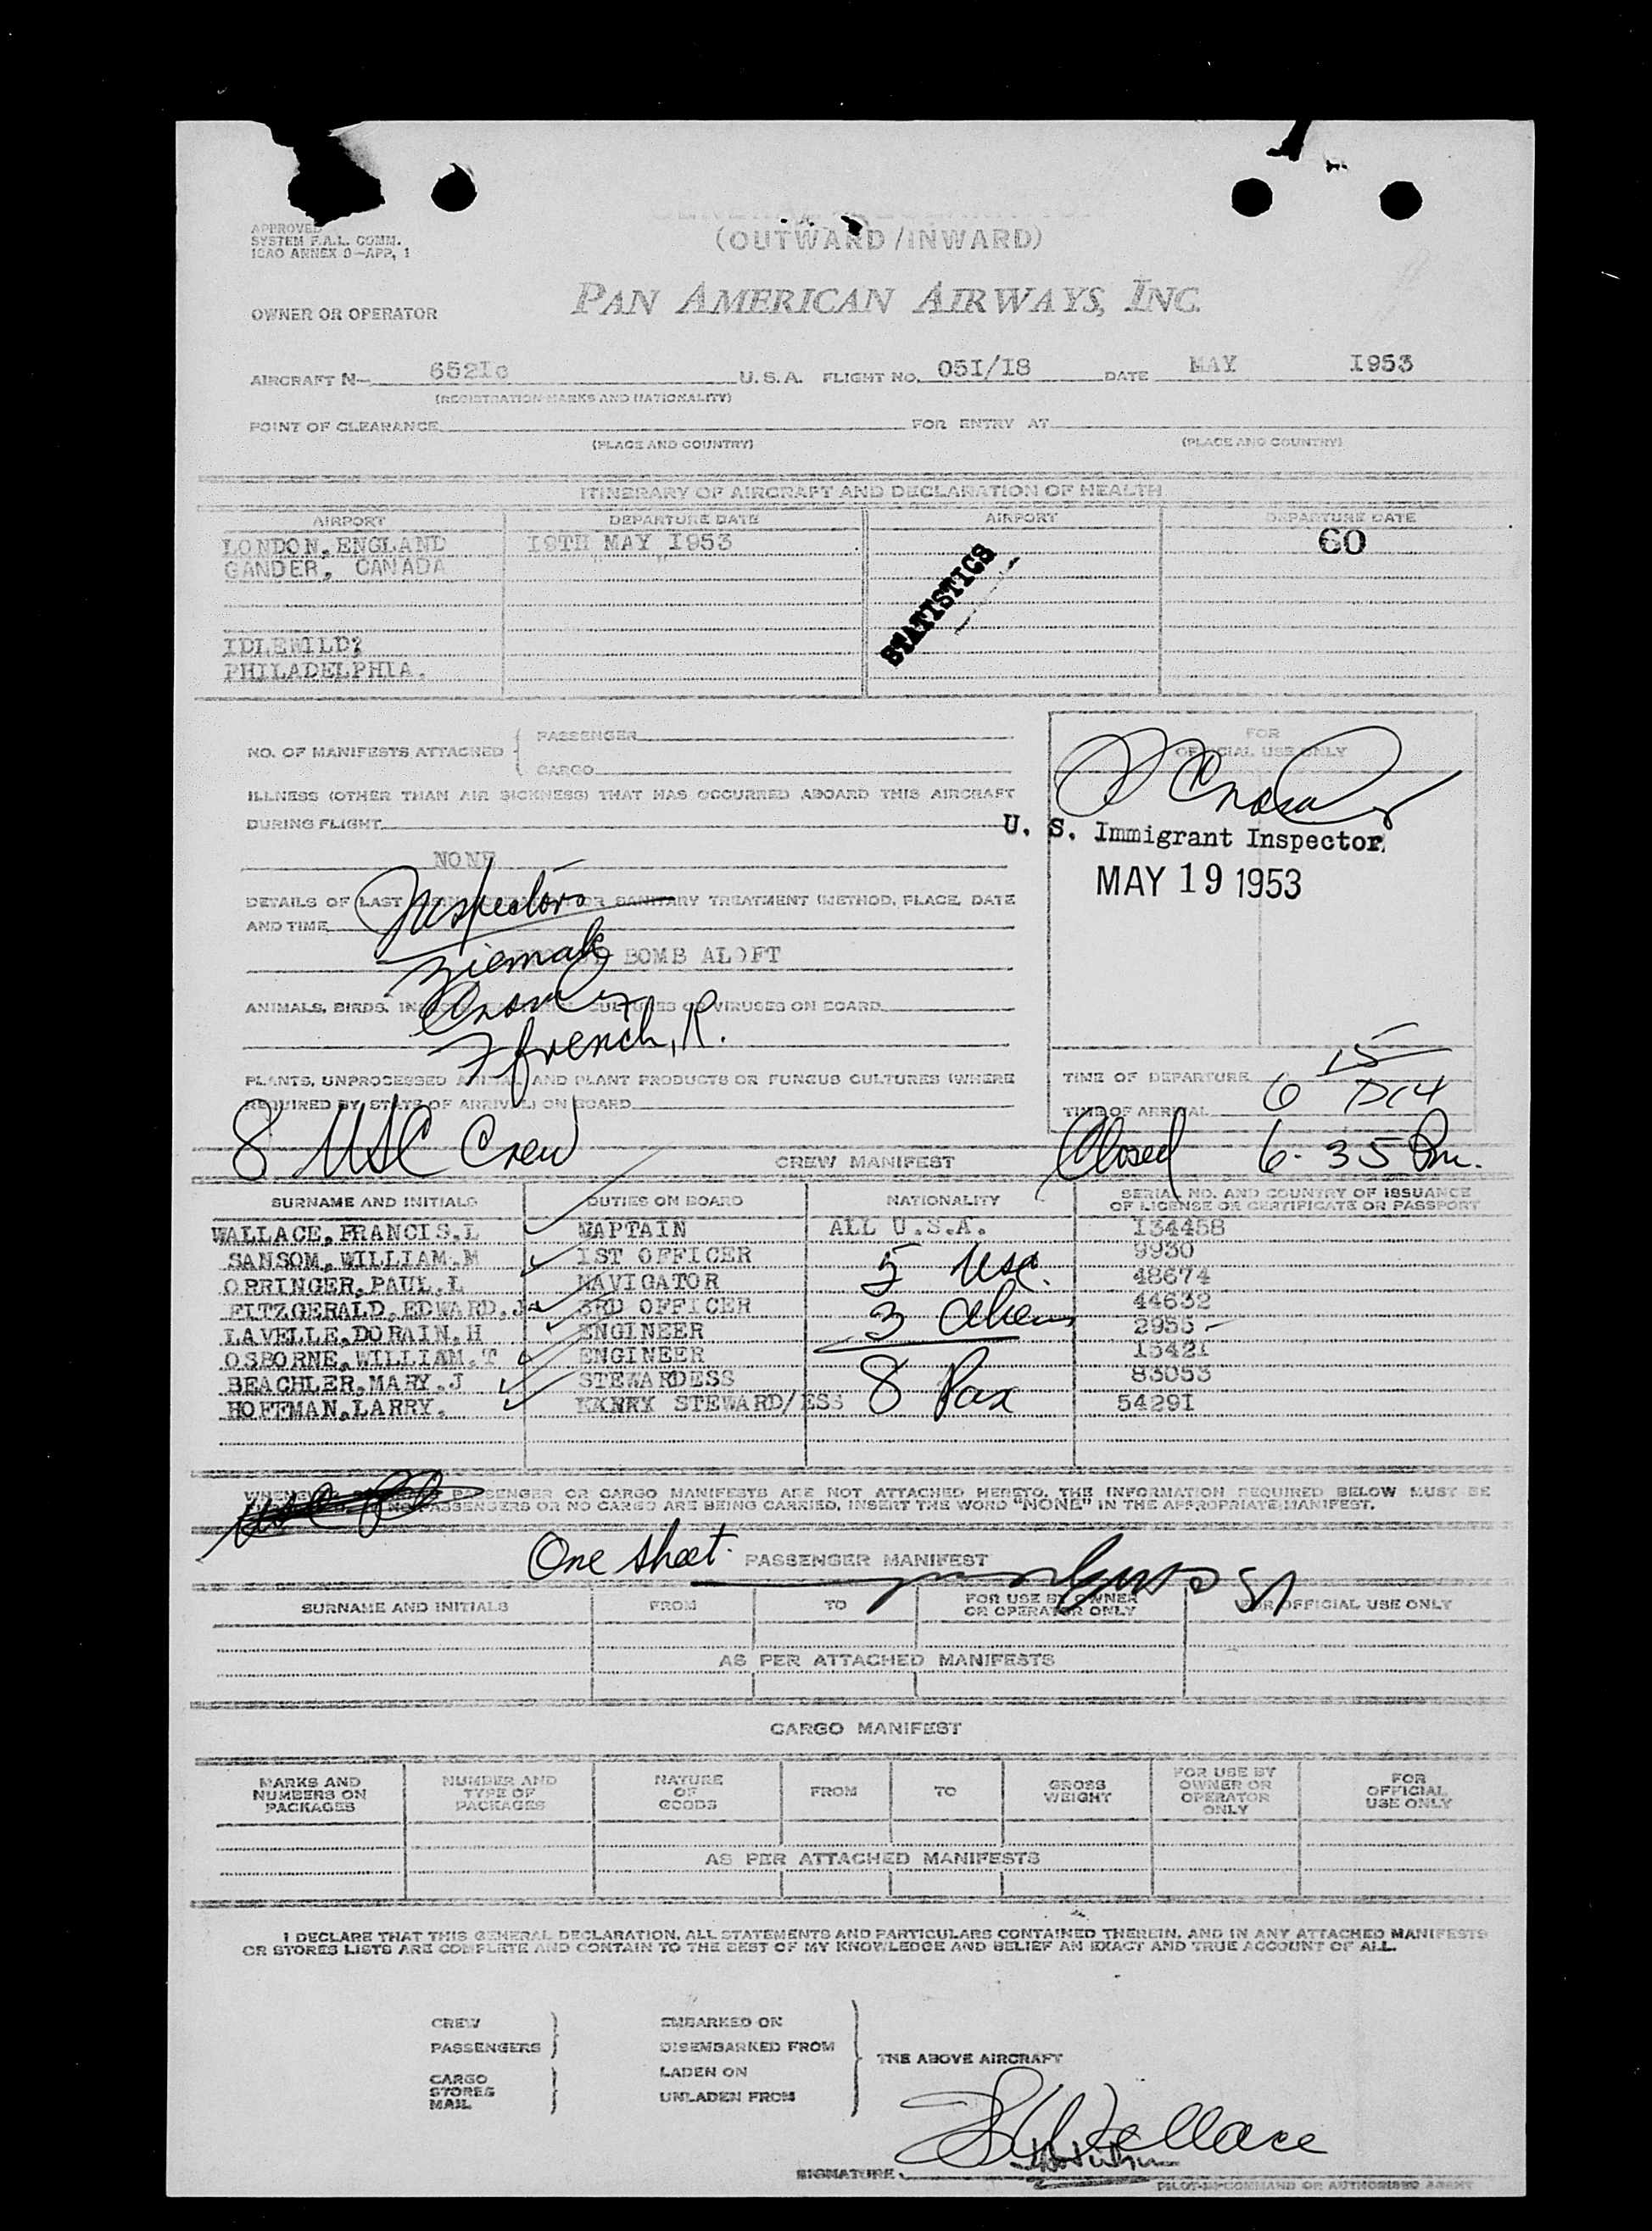 APPROVED
SYSTEM F.A.L. COMM.
ICAO ANNEX 9—APP, 1
(OUTWARD/INWARD)
OWNER OR OPERATOR PAN AMERICAN AIRWAYS, INC.
AIRCRAFT N— 652Ic U.S.A. FLIGHT NO. 05I/18 DATE MAY I953
(REGISTRATION MARKS AND NATIONALITY)
POINT OF CLEARANCE FOR ENTRY AT
(PLACE AND COUNTRY) (PLACE AND COUNTRY)
ITINERARY OF AIRCRAFT AND DECLARATION OF HEALTH
AIRPORT DEPARTURE DATE AIRPORT DEPARTURE DATE
LONDON, ENGLAND I9TH MAY I953 60
GANDER, CANADA " "
STATISTICS
IDLEWILD?
PHILADELPHIA.
NO. OF MANIFESTS ATTACHED { PASSENGER
CARGO
FOR
OFFICIAL USE ONLY
ILLNESS (OTHER THAN AIR SICKNESS) THAT HAS OCCURRED ABOARD THIS AIRCRAFT
DURING FLIGHT
U. S. Immigrant Inspector
NONE
MAY 19 1953
DETAILS OF LAST OR SANITARY TREATMENT (METHOD, PLACE, DATE
AND TIME
Inspectors
BOMB ALOFT
Ziemak
ANIMALS, BIRDS, CULTURES OR VIRUSES ON BOARD
French, R.
PLANTS, UNPROCESSED ANIMAL AND PLANT PRODUCTS OR FUNGUS CULTURES (WHERE
REQUIRED BY STATE OF ARRIVAL) ON BOARD
TIME OF DEPARTURE
TIME OF ARRIVAL 6 15 PM
8 USC Crew
Closed 6-35 Pm.
CREW MANIFEST
SURNAME AND INITIALS DUTIES ON BOARD NATIONALITY SERIAL NO. AND COUNTRY OF ISSUANCE
OF LICENSE OR CERTIFICATE OR PASSPORT
WALLACE, FRANCIS.L MAPTAIN ALL U.S.A. I34458
SANSOM, WILLIAM.M IST OFFICER 9930
ORRINGER, PAUL.L NAVIGATOR 5 USC. 48674
FITZGERALD, EDWARD.J 3RD OFFICER 3 Aliens 44632
LAVELLE, DORAIN.H ENGINEER 2955
OSBORNE, WILLIAM.T ENGINEER I542I
BEACHLER, MARY.J STEWARDESS 8 Pax 83053
HOFFMAN, LARRY. STEWARD/ESS 5429I
WHENEVER PASSENGER OR CARGO MANIFESTS ARE NOT ATTACHED HERETO, THE INFORMATION REQUIRED BELOW MUST BE
NO PASSENGERS OR NO CARGO ARE BEING CARRIED, INSERT THE WORD "NONE" IN THE APPROPRIATE MANIFEST.
One sheet. PASSENGER MANIFEST
SURNAME AND INITIALS FROM TO FOR USE BY OWNER
OR OPERATOR ONLY FOR OFFICIAL USE ONLY
AS PER ATTACHED MANIFESTS
CARGO MANIFEST
MARKS AND
NUMBERS ON
PACKAGES
NUMBER AND
TYPE OF
PACKAGES
NATURE
OF
GOODS
FROM
TO
GROSS
WEIGHT
FOR USE BY
OWNER OR
OPERATOR
ONLY
FOR
OFFICIAL
USE ONLY
AS PER ATTACHED MANIFESTS
I DECLARE THAT THIS GENERAL DECLARATION, ALL STATEMENTS AND PARTICULARS CONTAINED THEREIN, AND IN ANY ATTACHED MANIFESTS
OR STORES LISTS ARE COMPLETE AND CONTAIN TO THE BEST OF MY KNOWLEDGE AND BELIEF AN EXACT AND TRUE ACCOUNT OF ALL.
CREW
PASSENGERS
CARGO
STORES
MAIL
EMBARKED ON
DISEMBARKED FROM
LADEN ON
UNLADEN FROM
THE ABOVE AIRCRAFT
Wallace
SIGNATURE
PILOT-IN-COMMAND OR AUTHORISED AGENT